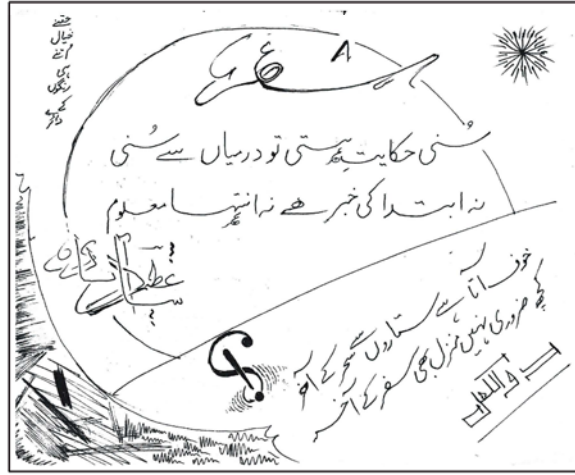 جتنے
خیال
اتنے
ہی
رنگوں
کے
دائرے
A
سُنی حکایتِ ہستی تو درمیاں سے سُنی
نہ ابتدا کی خبر ہے نہ انتہا معلوم
خوف آتا ہے ستاروں سے سحر کے آخر
کچھ ضروری نہیں منزل بھی سفر کے آخر